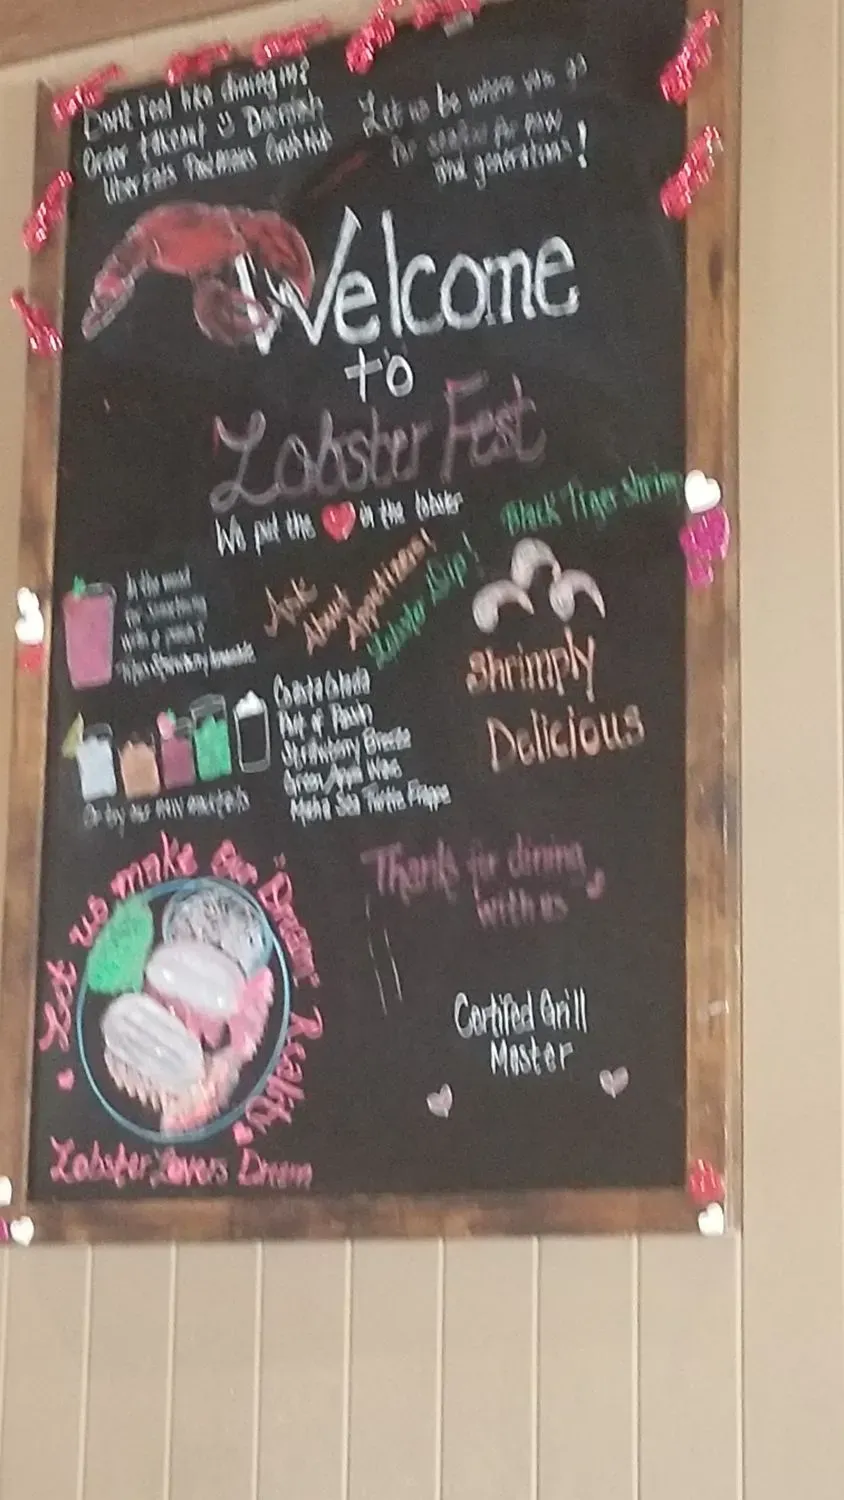 Don't feel like dining in?
Order takeout Doordash
Uber Eats Postmates Grub Hub
Let us be where you go
for seafood for now
and generations!
Welcome
to
Lobster Fest
We put the in the lobster
Black Tiger Shrimp
Ask
About
Appetizers!
Lobster Dip!
In the mood
for something
with a punch?
Strawberry
Shrimply
Delicious
Coastal Colada
Pot of
Strawberry Breeze
Green Apple
Sea Turtle Frappe
Or try our
Let us make our "Dream" Reality
Lobster Lovers Dream
Thanks for dining
with us
Certifed Grill
Master